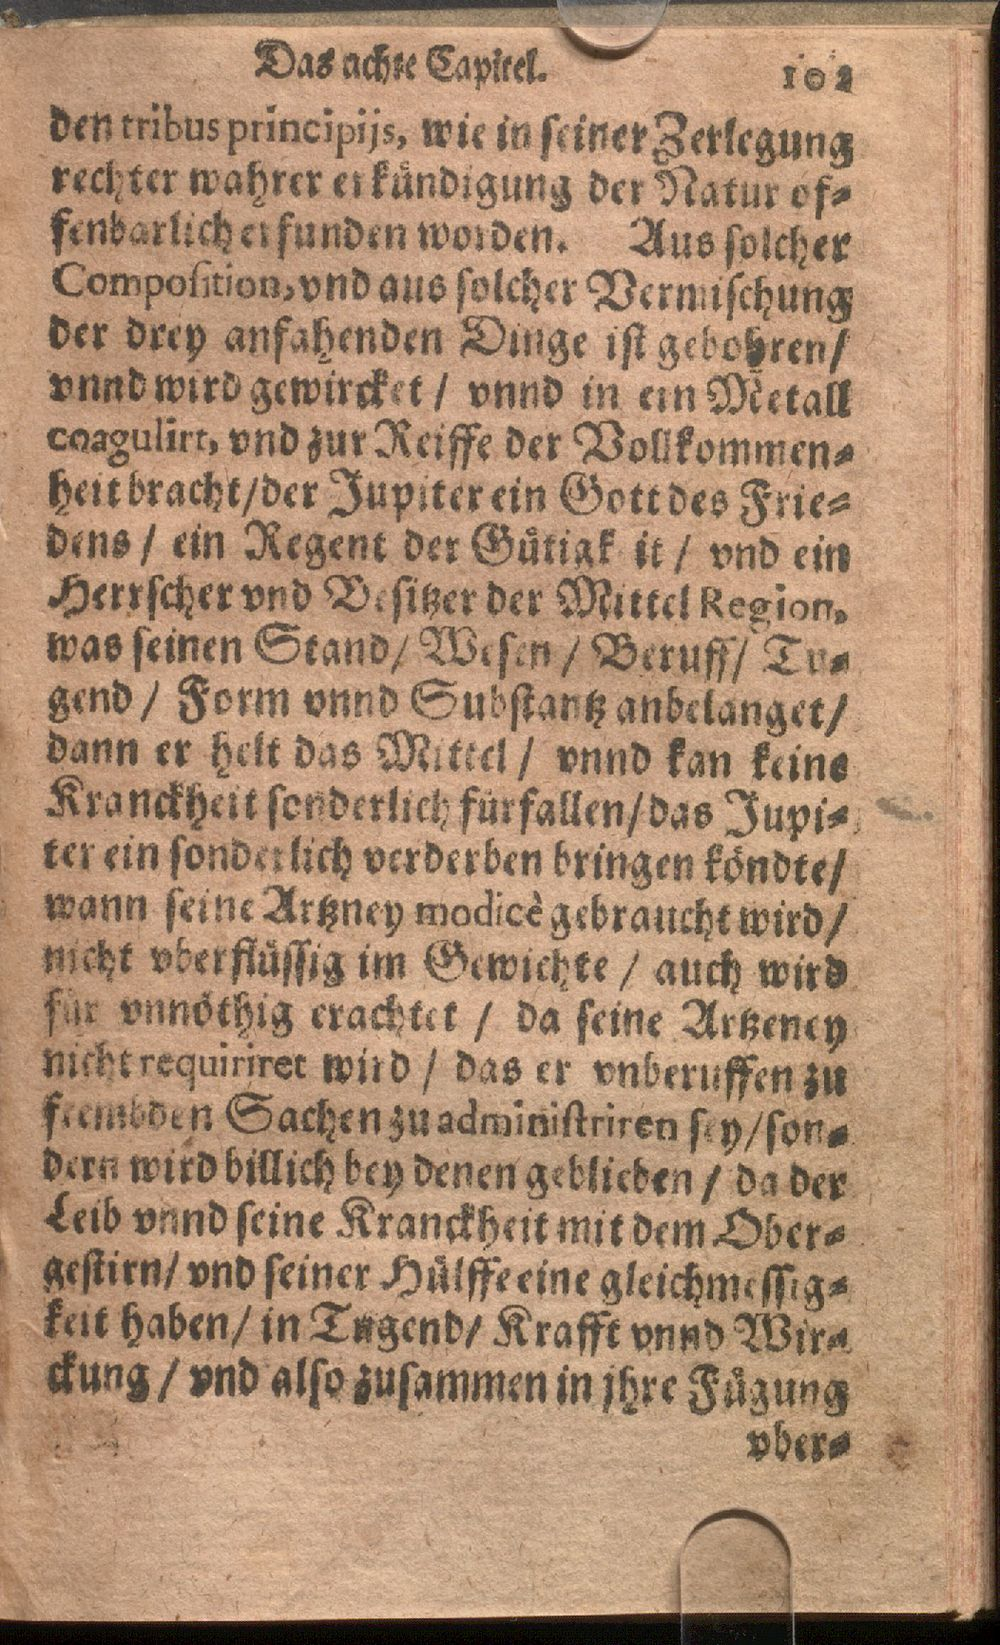 Das achte Capitel. 102
den tribus principijs, wie in seiner Zerlegung
rechter wahrer erkündigung der Natur of-
fenbarlich erfunden worden. Aus solcher
Composition, vnd aus solcher Vermischung
der drey anfahenden Dinge ist gebohren/
vnnd wird gewircket / vnnd in ein Metall
coagulirt, vnd zur Reiffe der Vollkommen-
heit bracht/der Jupiter ein Gott des Frie-
dens / ein Regent der Gütigk it / vnd ein
Herrscher vnd Besitzer der Mittel Region,
was seinen Stand/ Wesen / Beruff/ Tu-
gend / Form vnnd Substantz anbelanget/
dann er helt das Mittel / vnnd kan keine
Kranckheit sonderlich fürfallen/das Jupi-
ter ein sonderlich verderben bringen köndte/
wann seine Artzney modicè gebraucht wird/
nicht vberflüssig im Gewichte / auch wird
für vnnöthig erachtet / da seine Artzeney
nicht requiriret wird / das er vnberuffen zu
frembden Sachen zu administriren sey/son-
dern wird billich bey denen geblieben / da der
Leib vnnd seine Kranckheit mit dem Ober-
gestirn/ vnd seiner Hülffe eine gleichmessig-
keit haben/ in Tugend/ Krafft vnnd Wir-
ckung / vnd also zusammen in jhre Fügung
vber-